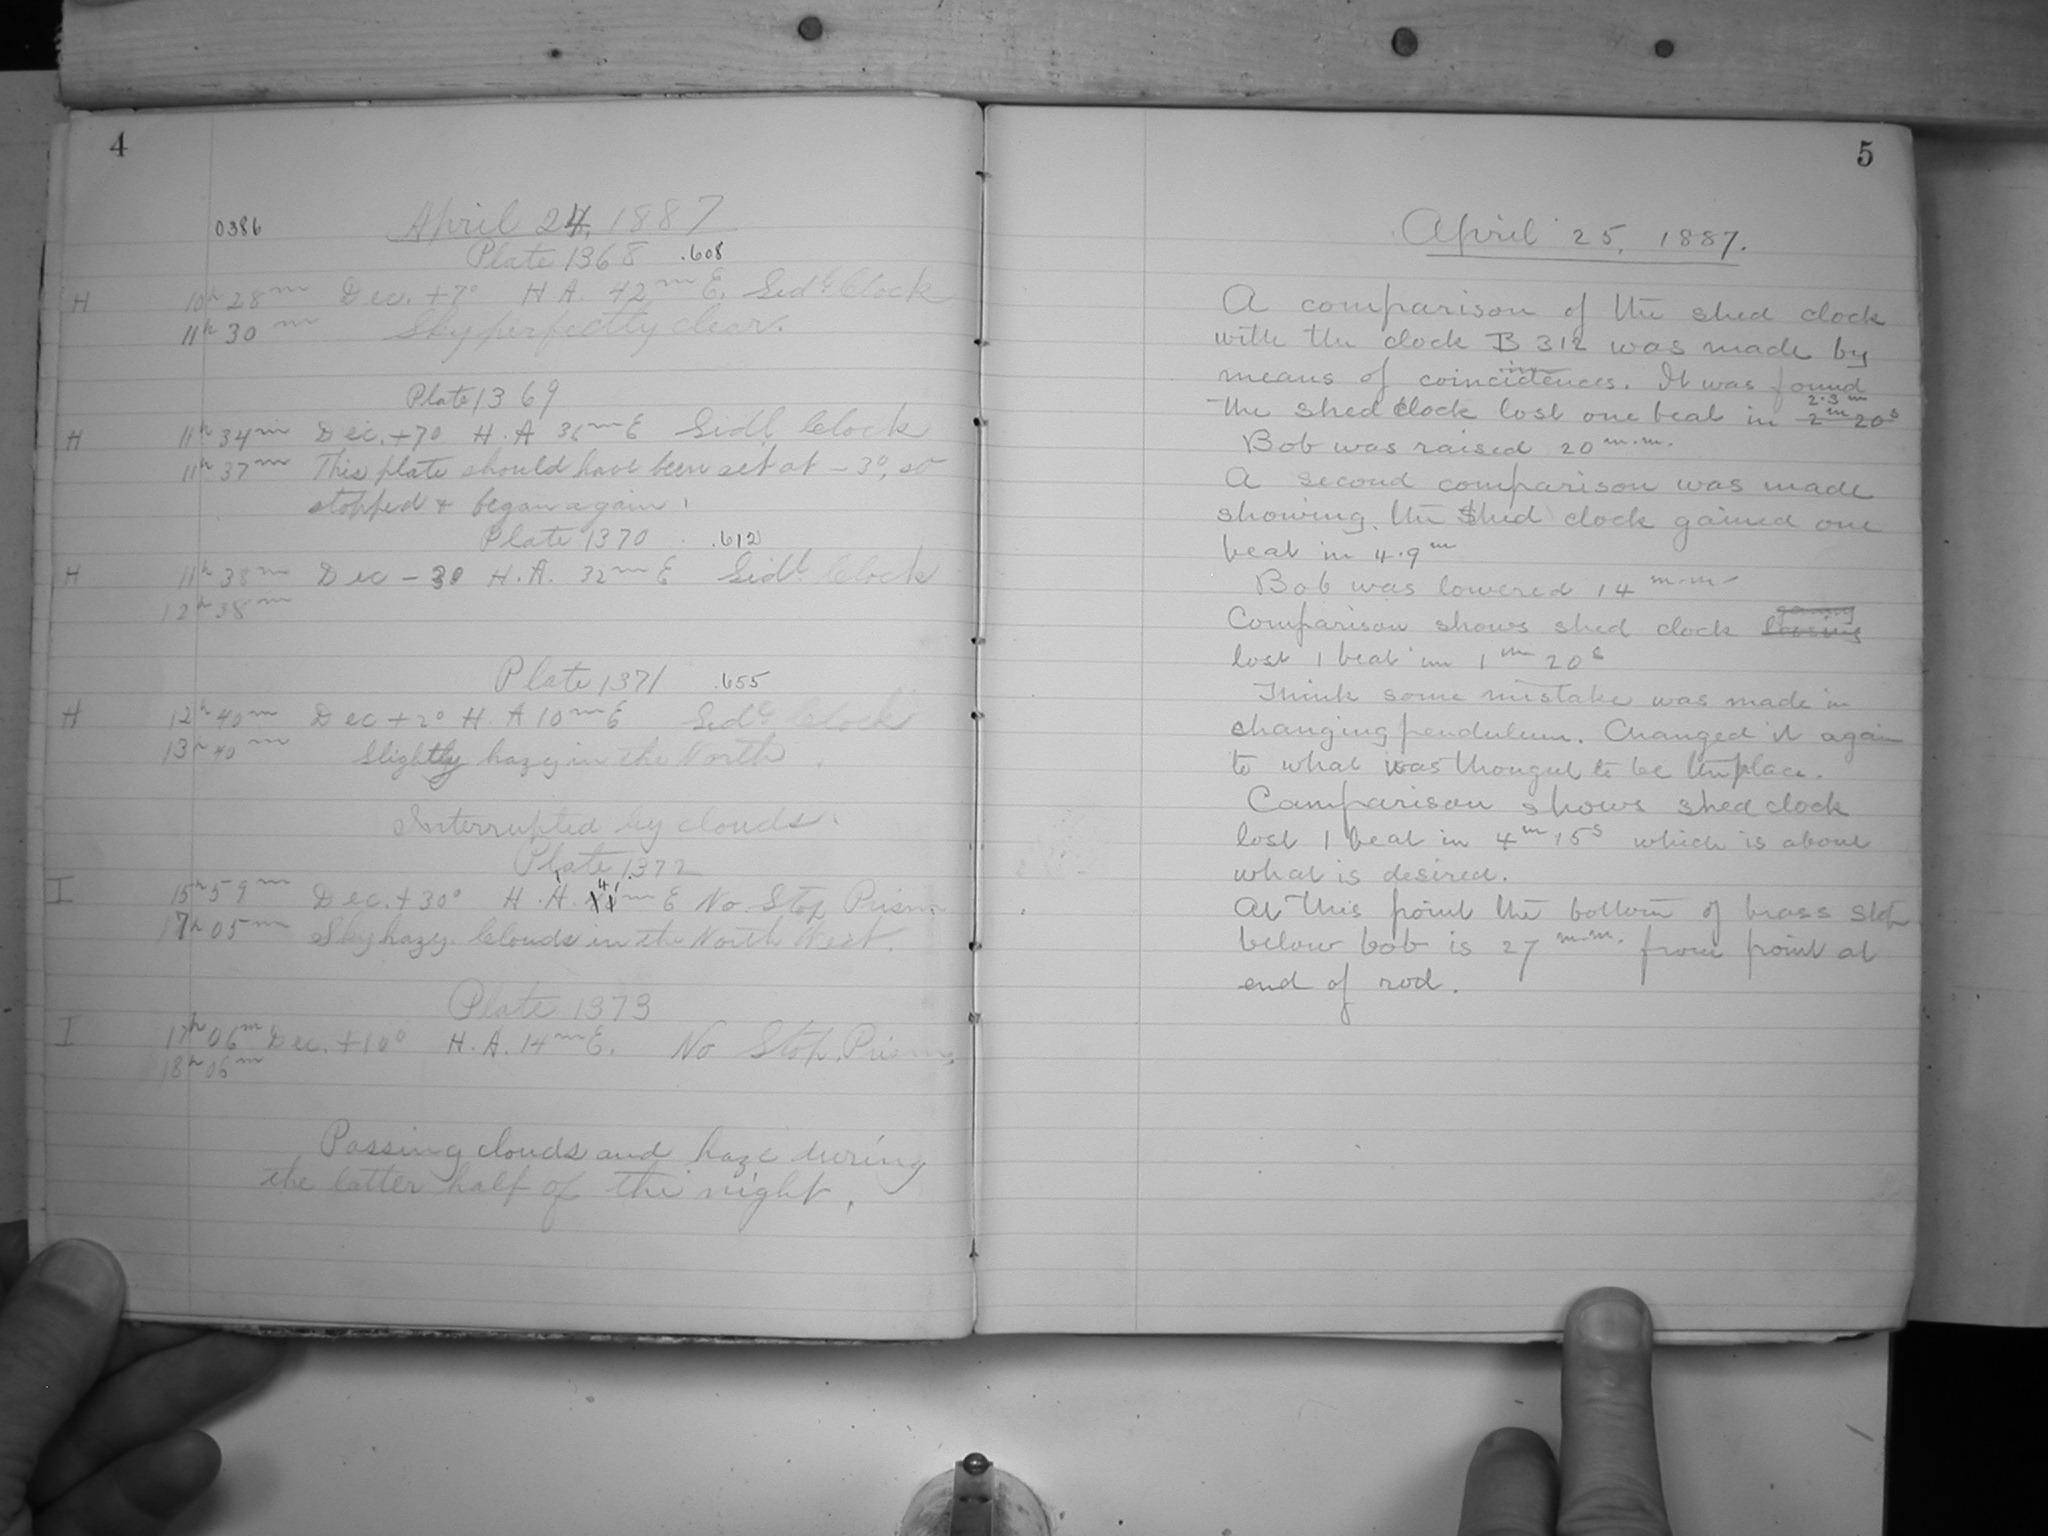 4
0386
April 24, 1887
Plate 1368 .608
H 10h 28m Dec. +7° H.A. 42m E. Sidl Clock
11h 30m Sky perfectly clear.
Plate 1369
H 11h 34m Dec. +7° H.A 36m E Sidl Clock
11h 37m This plate should have been set at -3°, so
stopped & began again.
Plate 1370 .612
H 11h 38m Dec -3° H.A. 32m E Sidl Clock
12h 38m
Plate 1371 .655
H 12h 40m Dec +2° H.A 10m E Sidl Clock
13h 40m Slightly hazy in the North.
Interrupted by clouds.
Plate 1372
I 15h 59m Dec. +30° H.A. 41m E No Stop, Prism.
17h 05m Sky hazy. Clouds in the North West.
Plate 1373
I 17h 06m Dec. +10° H.A. 14m E. No Stop, Prism.
18h 06m
Passing clouds and haze during
the latter half of the night.
5
April 25, 1887.
A comparison of the shed clock
with the clock B 312 was made by
means of coincidences. It was found
the shed clock lost one beat in 2m 20s 2.3m
Bob was raised 20 m.m.
A second comparison was made
showing the shed clock gained one
beat in 4.9m
Bob was lowered 14 m.m.
Comparison shows shed clock loosing gaining
lost 1 beat in 1m 20s
Think some mistake was made in
changing pendulum. Changed it again
to what was thought to be the place.
Comparison shows shed clock
lost 1 beat in 4m 15s which is about
what is desired.
At this point the bottom of brass stop
below bob is 27 m.m. from point at
end of rod.